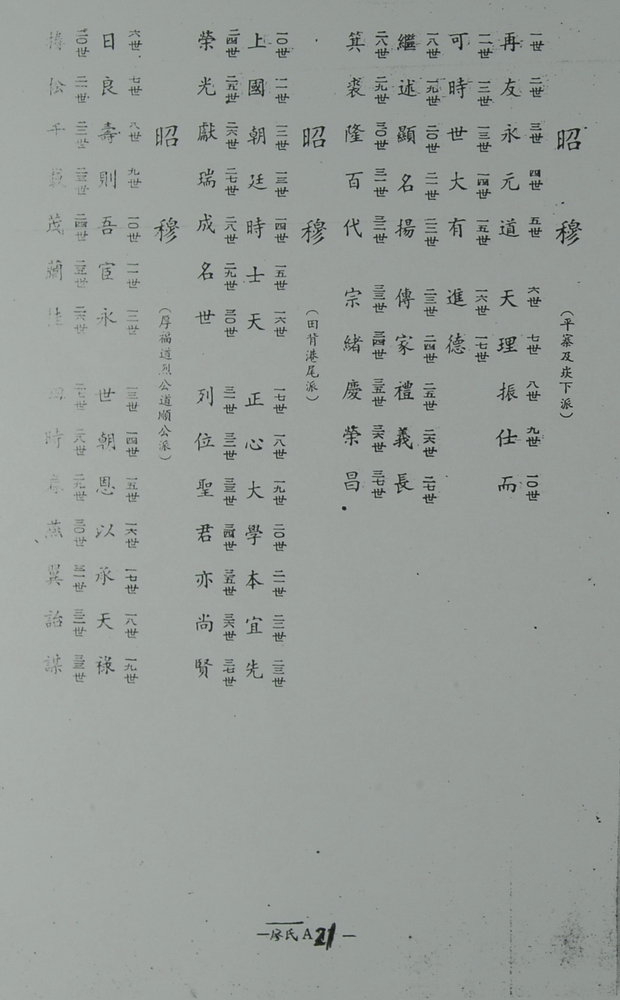 昭穆（平寨及崁下派）
一世 二世 三世 四世 五世 六世 七世 八世 九世 一0世
再友永元道 天理振仕而
一一世 一二世 一三世 一四世 一五世 一六世 一七世
可時世大有 進德
一八世 一九世 二0世 二一世 二二世 二三世 二四世 二五世 二六世 二七世
繼述顯名揚 傳家禮義長
二八世 二九世 三0世 三一世 三二世 三三世 三四世 三五世 三六世 三七世
箕裘隆百代 宗緒慶榮昌
昭穆（田背港尾派）
一0世 一一世 一二世 一三世 一四世 一五世 一六世 一七世 一八世 一九世 二0世 二一世 二二世 二三世
上國朝廷時士天 正心大學本宜先
二四世 二五世 二六世 二七世 二八世 二九世 三0世 三一世 三二世 三三世 三四世 三五世 三六世 三七世
榮光獻瑞成名世 列位聖君亦尚賢
昭穆（厚福道烈公道順公派）
六世 七世 八世 九世 一0世 一一世 一二世 一三世 一四世 一五世 一六世 一七世 一八世 一九世
日良壽則吾宦永 世朝恩以承天祿
二0世 二一世 二二世 二三世 二四世 二五世 二六世 二七世 二八世 二九世 三0世 三一世 三二世 三三世
松千茂蘭 時燕翼詒謀
—廖氏A21—